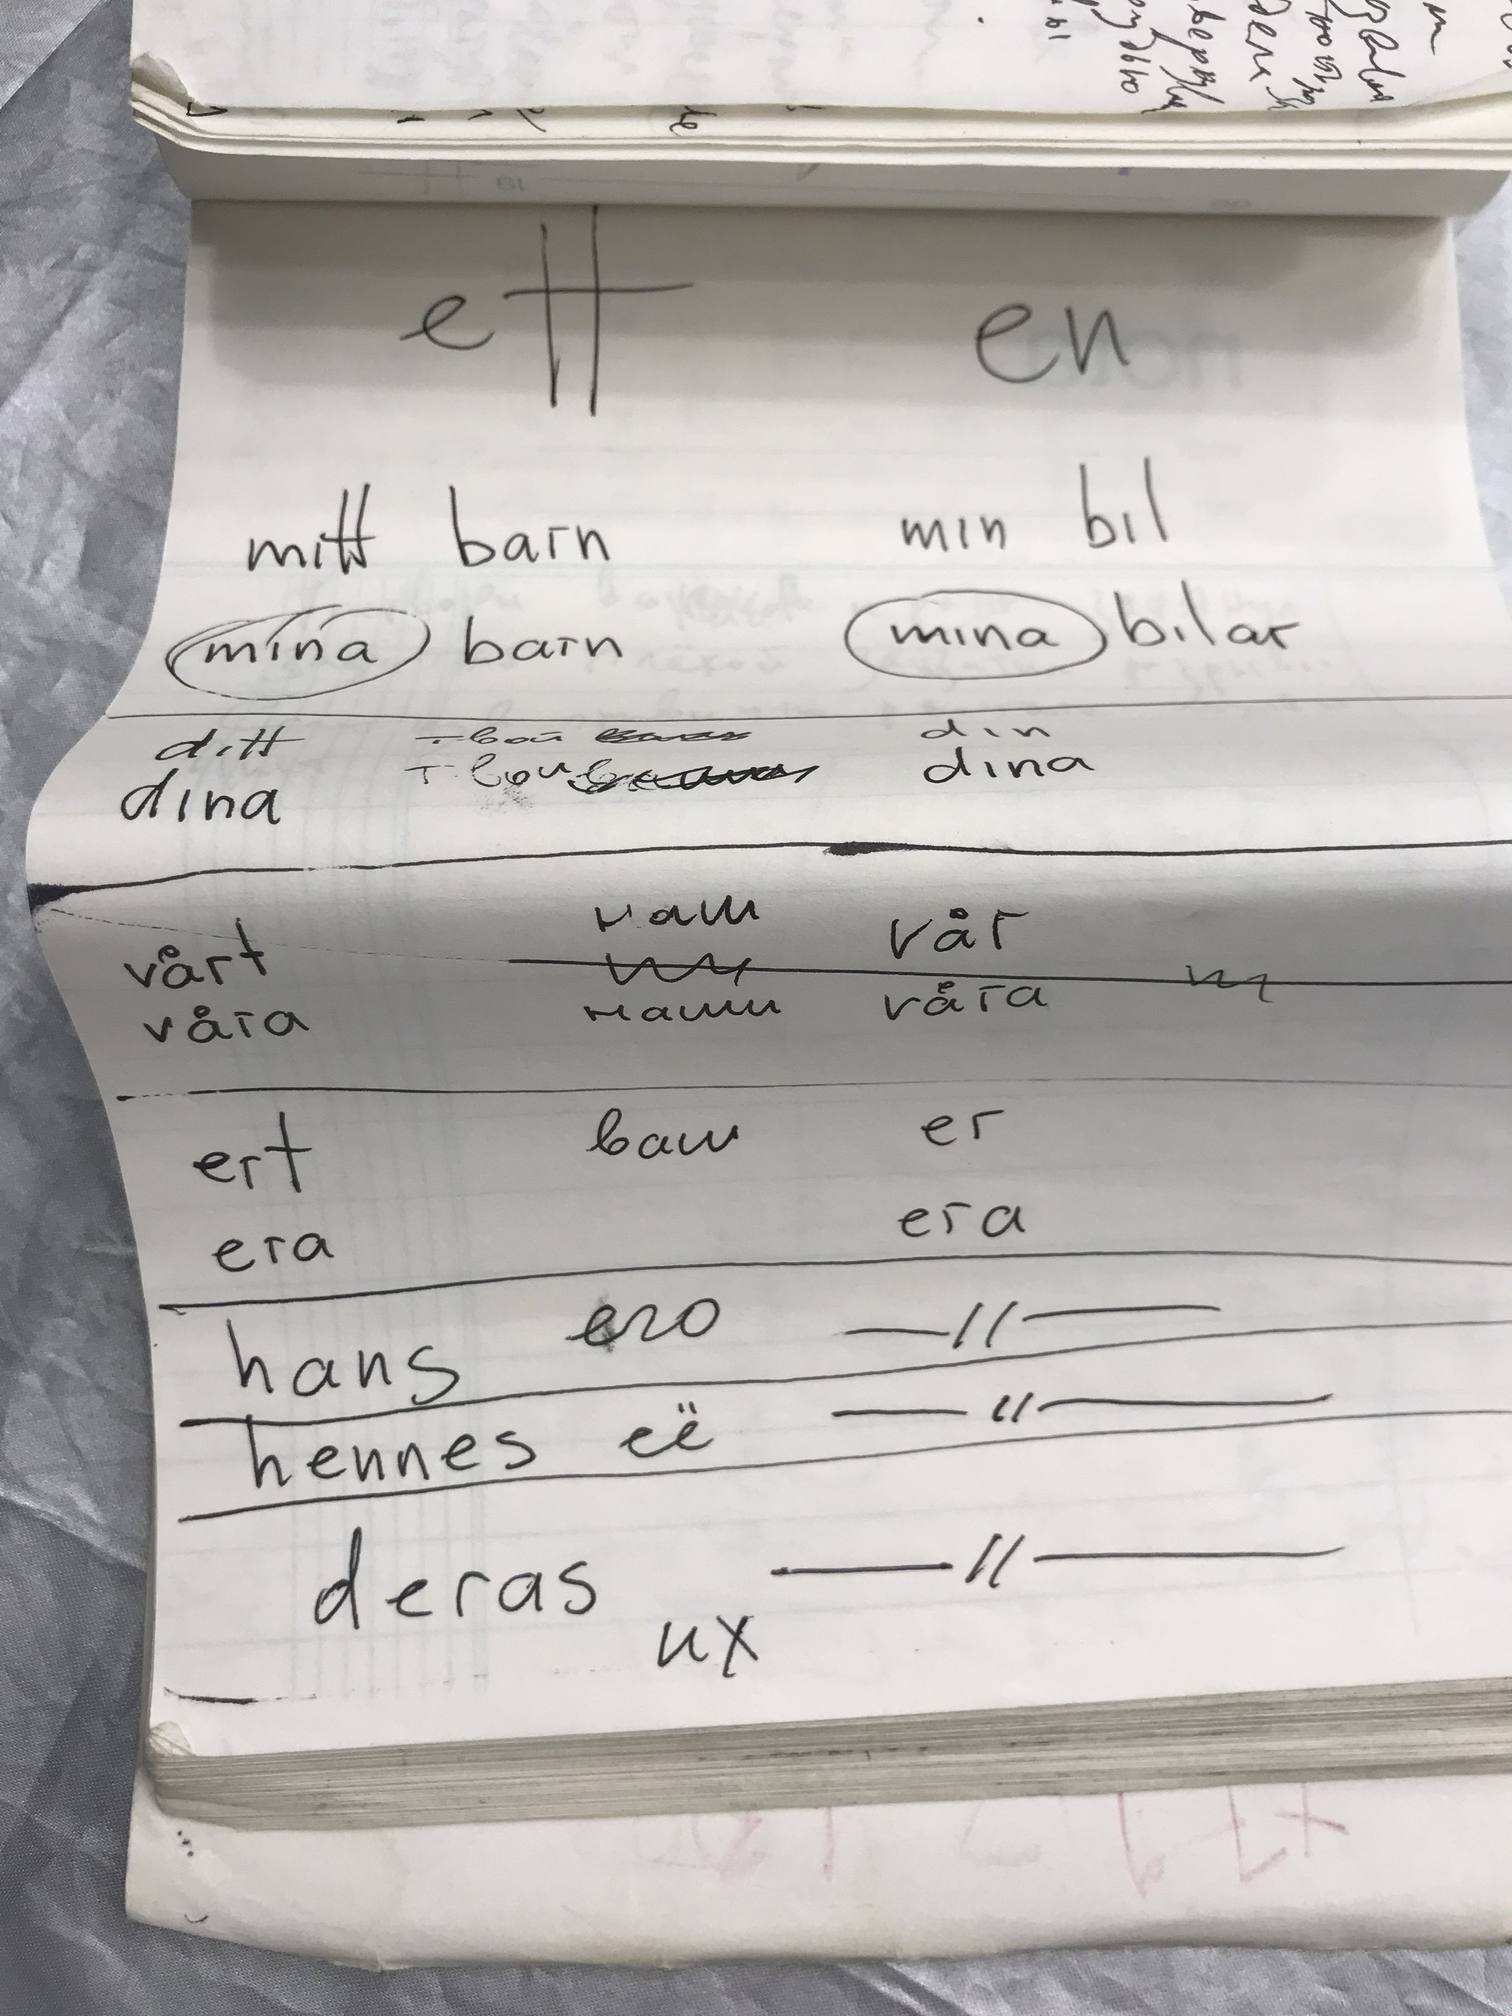 ett en
mitt barn min bil
mina barn mina bilar
ditt твой din
dina твои dina
vårt наш vår
våra наши våra
ert ваш er
era era
hans его —//—
hennes её —//—
deras —//—
их